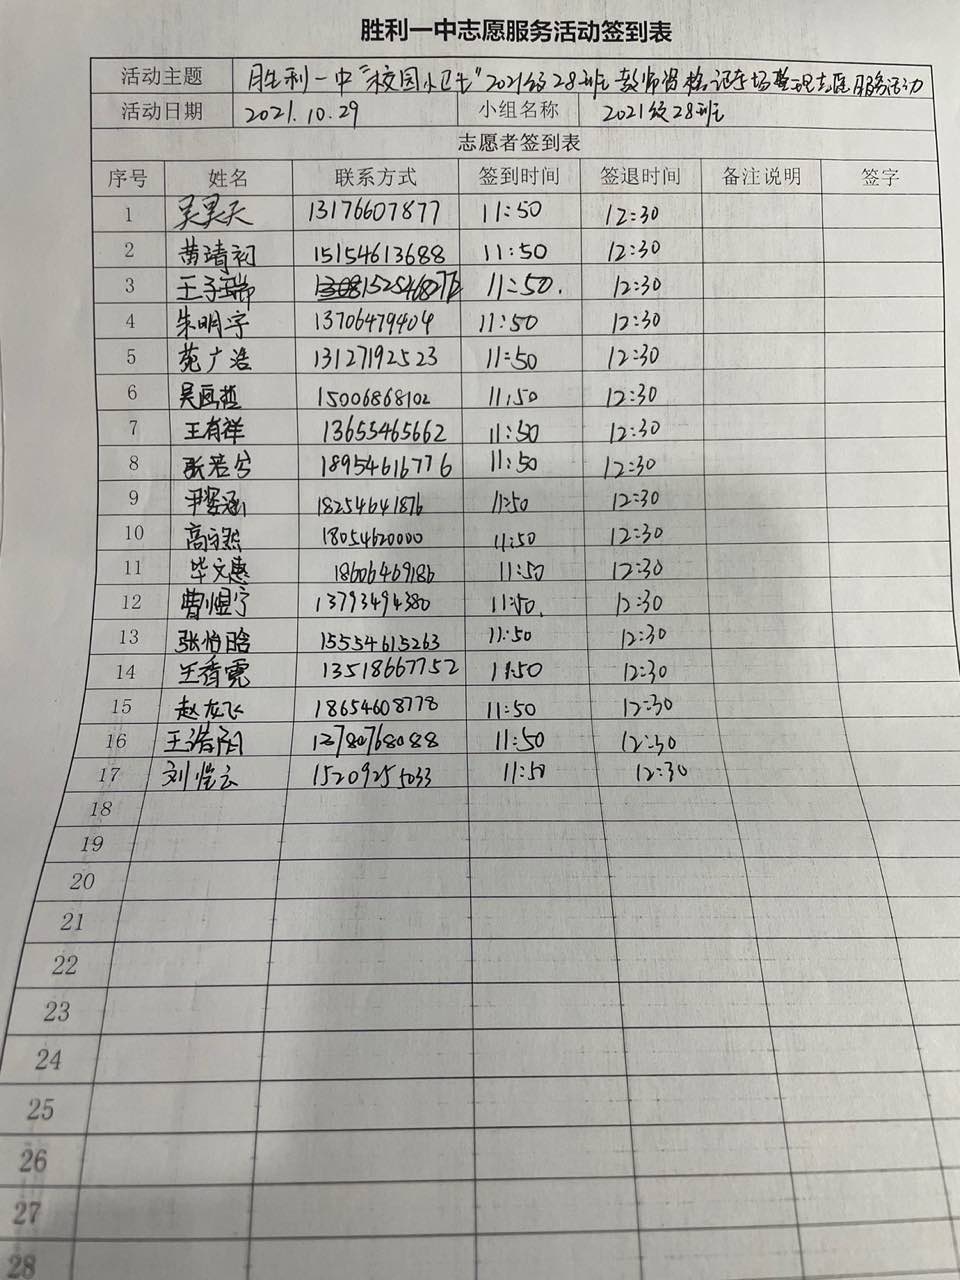 胜利一中志愿服务活动签到表
活动主题 胜利一中“校园卫士”2021级28班教师资格证考场整理志愿服务活动
活动日期 2021.10.29 小组名称 2021级28班
志愿者签到表
序号 姓名 联系方式 签到时间 签退时间 备注说明 签字
1 吴昊天 13176607877 11:50 12:30
2 黄靖初 15154613688 11:50 12:30
3 王子瑞 11:50. 12:30
4 朱明宇 13706479404 11:50 12:30
5 苑广浩 13127192523 11:50 12:30
6 15006868102 11:50 12:30
7 王有祥 13655465662 11:50 12:30
8 张若兮 18954616776 11:50 12:30
9 18254641876 11:50 12:30
10 18054620000 11:50 12:30
11 毕文惠 18606469186 11:50 12:30
12 曹煜宁 13793494380 11:50. 12:30
13 张怡晗 15554615263 11:50 12:30
14 王香霓 13518667752 11:50 12:30
15 赵龙飞 18654608778 11:50 12:30
16 王浩阳 13780768088 11:50 12:30
17 刘恺云 15209255033 11:50 12:30
18
19
20
21
22
23
24
25
26
27
28